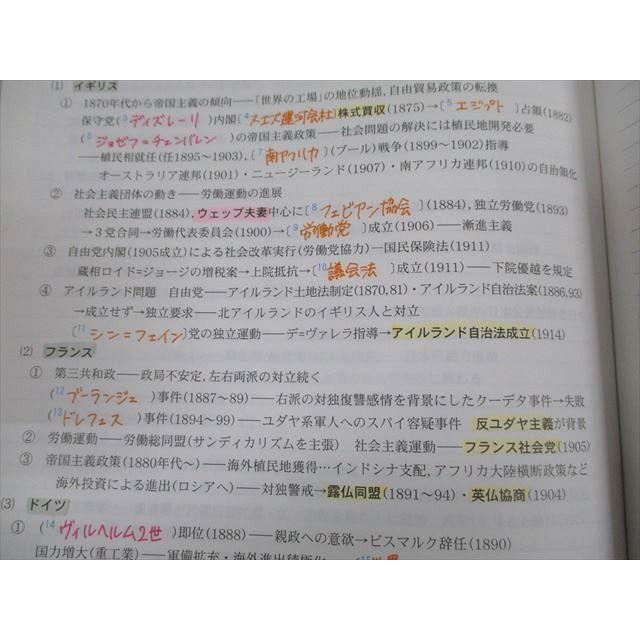 (1) イギリス
① 1870年代から帝国主義の傾向――「世界の工場」の地位動揺，自由貿易政策の転換
保守党(3 ディズレーリ )内閣〔4 スエズ運河会社〕株式買収(1875)→〔5 エジプト 〕占領(1882)
(6 ジョゼフ=チェンバレン )の帝国主義政策――社会問題の解決には植民地開発必要
――植民相就任(任1895～1903)，〔7 南アフリカ 〕(ブール)戦争(1899～1902)指導
オーストラリア連邦(1901)・ニュージーランド(1907)・南アフリカ連邦(1910)の自治領化
② 社会主義団体の動き――労働運動の進展
社会民主連盟(1884)，ウェッブ夫妻中心に〔8 フェビアン協会 〕(1884)，独立労働党(1893)
→3党合同→労働代表委員会(1900)→〔9 労働党 〕成立(1906)――漸進主義
③ 自由党内閣(1905成立)による社会改革実行(労働党協力)―国民保険法(1911)
蔵相ロイド=ジョージの増税案→上院抵抗→〔10 議会法 〕成立(1911)――下院優越を規定
④ アイルランド問題 自由党――アイルランド土地法制定(1870,81)・アイルランド自治法案(1886,93)
→成立せず→独立要求――北アイルランドのイギリス人と対立
〔11 シン=フェイン〕党の独立運動――デ=ヴァレラ指導→アイルランド自治法成立(1914)
(2) フランス
① 第三共和政――政局不安定，左右両派の対立続く
(12 ブーランジェ )事件(1887～89)――右派の対独復讐感情を背景にしたクーデタ事件→失敗
(13 ドレフュス )事件(1894～99)――ユダヤ系軍人へのスパイ容疑事件 反ユダヤ主義が背景
② 労働運動――労働総同盟(サンディカリズムを主張) 社会主義運動――フランス社会党(1905)
③ 帝国主義政策(1880年代～)――海外植民地獲得…インドシナ支配，アフリカ大陸横断政策など
海外投資による進出(ロシアへ)――対独警戒→露仏同盟(1891～94)・英仏協商(1904)
(3) ドイツ
① (14 ヴィルヘルム2世 )即位(1888)――親政への意欲→ビスマルク辞任(1890)
国力増大(重工業)――軍備拡充・海外進出積極化